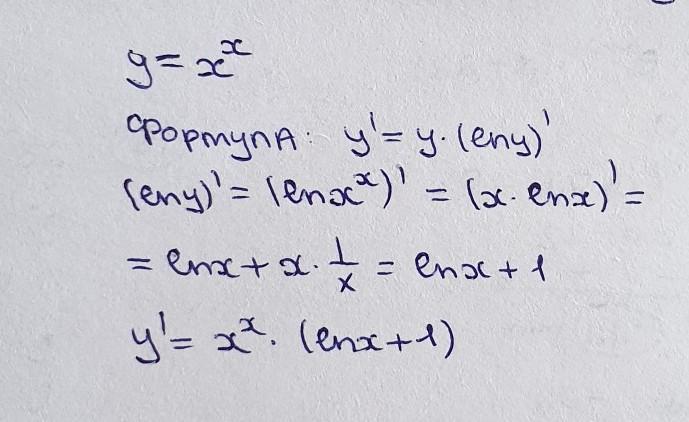 y = x^x
Формула: y' = y · (ln y)'
(ln y)' = (ln x^x)' = (x · ln x)' =
= ln x + x · 1/x = ln x + 1
y' = x^x · (ln x + 1)